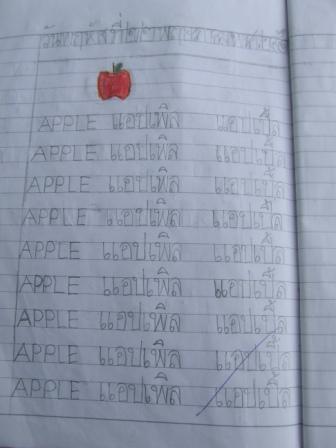 วันพฤหัสที่
APPLE แอปเพิล แอปเปิ้ล
APPLE แอปเพิล แอปเปิ้ล
APPLE แอปเพิล แอปเปิ้ล
APPLE แอปเพิล แอปเปิ้ล
APPLE แอปเพิล แอปเปิ้ล
APPLE แอปเพิล แอปเปิ้ล
APPLE แอปเพิล แอปเปิ้ล
APPLE แอปเพิล แอปเปิ้ล
APPLE แอปเพิล แอปเปิ้ล